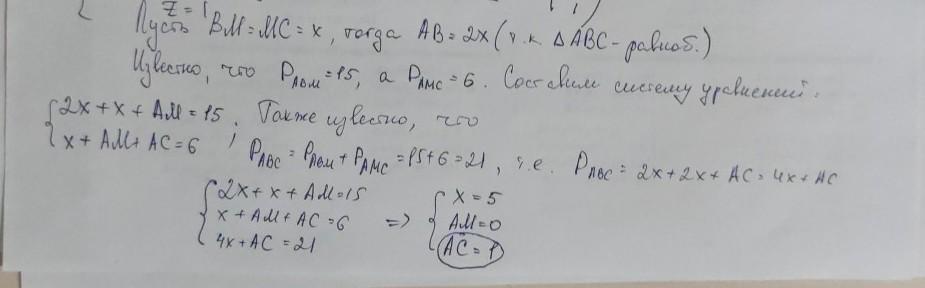 Z = 1
Пусть BM = MC = x, тогда AB = 2x (т.к. △ABC - равноб.)
Известно, что P_ABM = 15, а P_AMC = 6. Составим систему уравнений:
{ 2x + x + AM = 15 . Также известно, что
{ x + AM + AC = 6 , P_ABC = P_ABM + P_AMC = 15 + 6 = 21, т.е. P_ABC = 2x + 2x + AC = 4x + AC
{ 2x + x + AM = 15 { x = 5
{ x + AM + AC = 6 => { AM = 0
{ 4x + AC = 21 { AC = 1